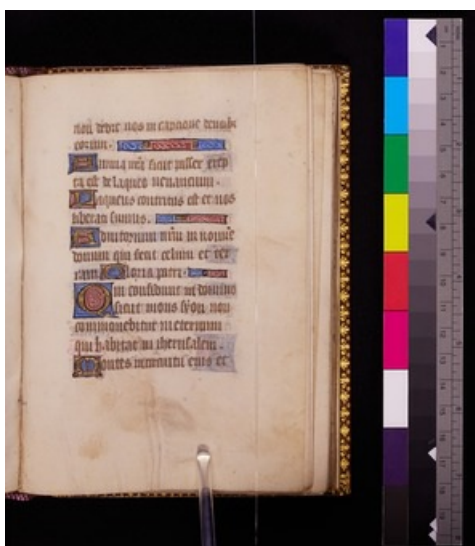 non dedit nos in captione dentibꝫ
eorum.
Anima nr̄a sicut passer erep
ta est de laqueo venantium.
Laqueus contritus est et nos
liberati sumus.
Adiutorium nr̄m in nomine
domini qui fecit celum et ter
ram Gloria patri.
Qui confidunt in domino
sicut mons syon non
commovebitur in eternum
qui habitat in iherusalem.
Montes in circuitu eius et